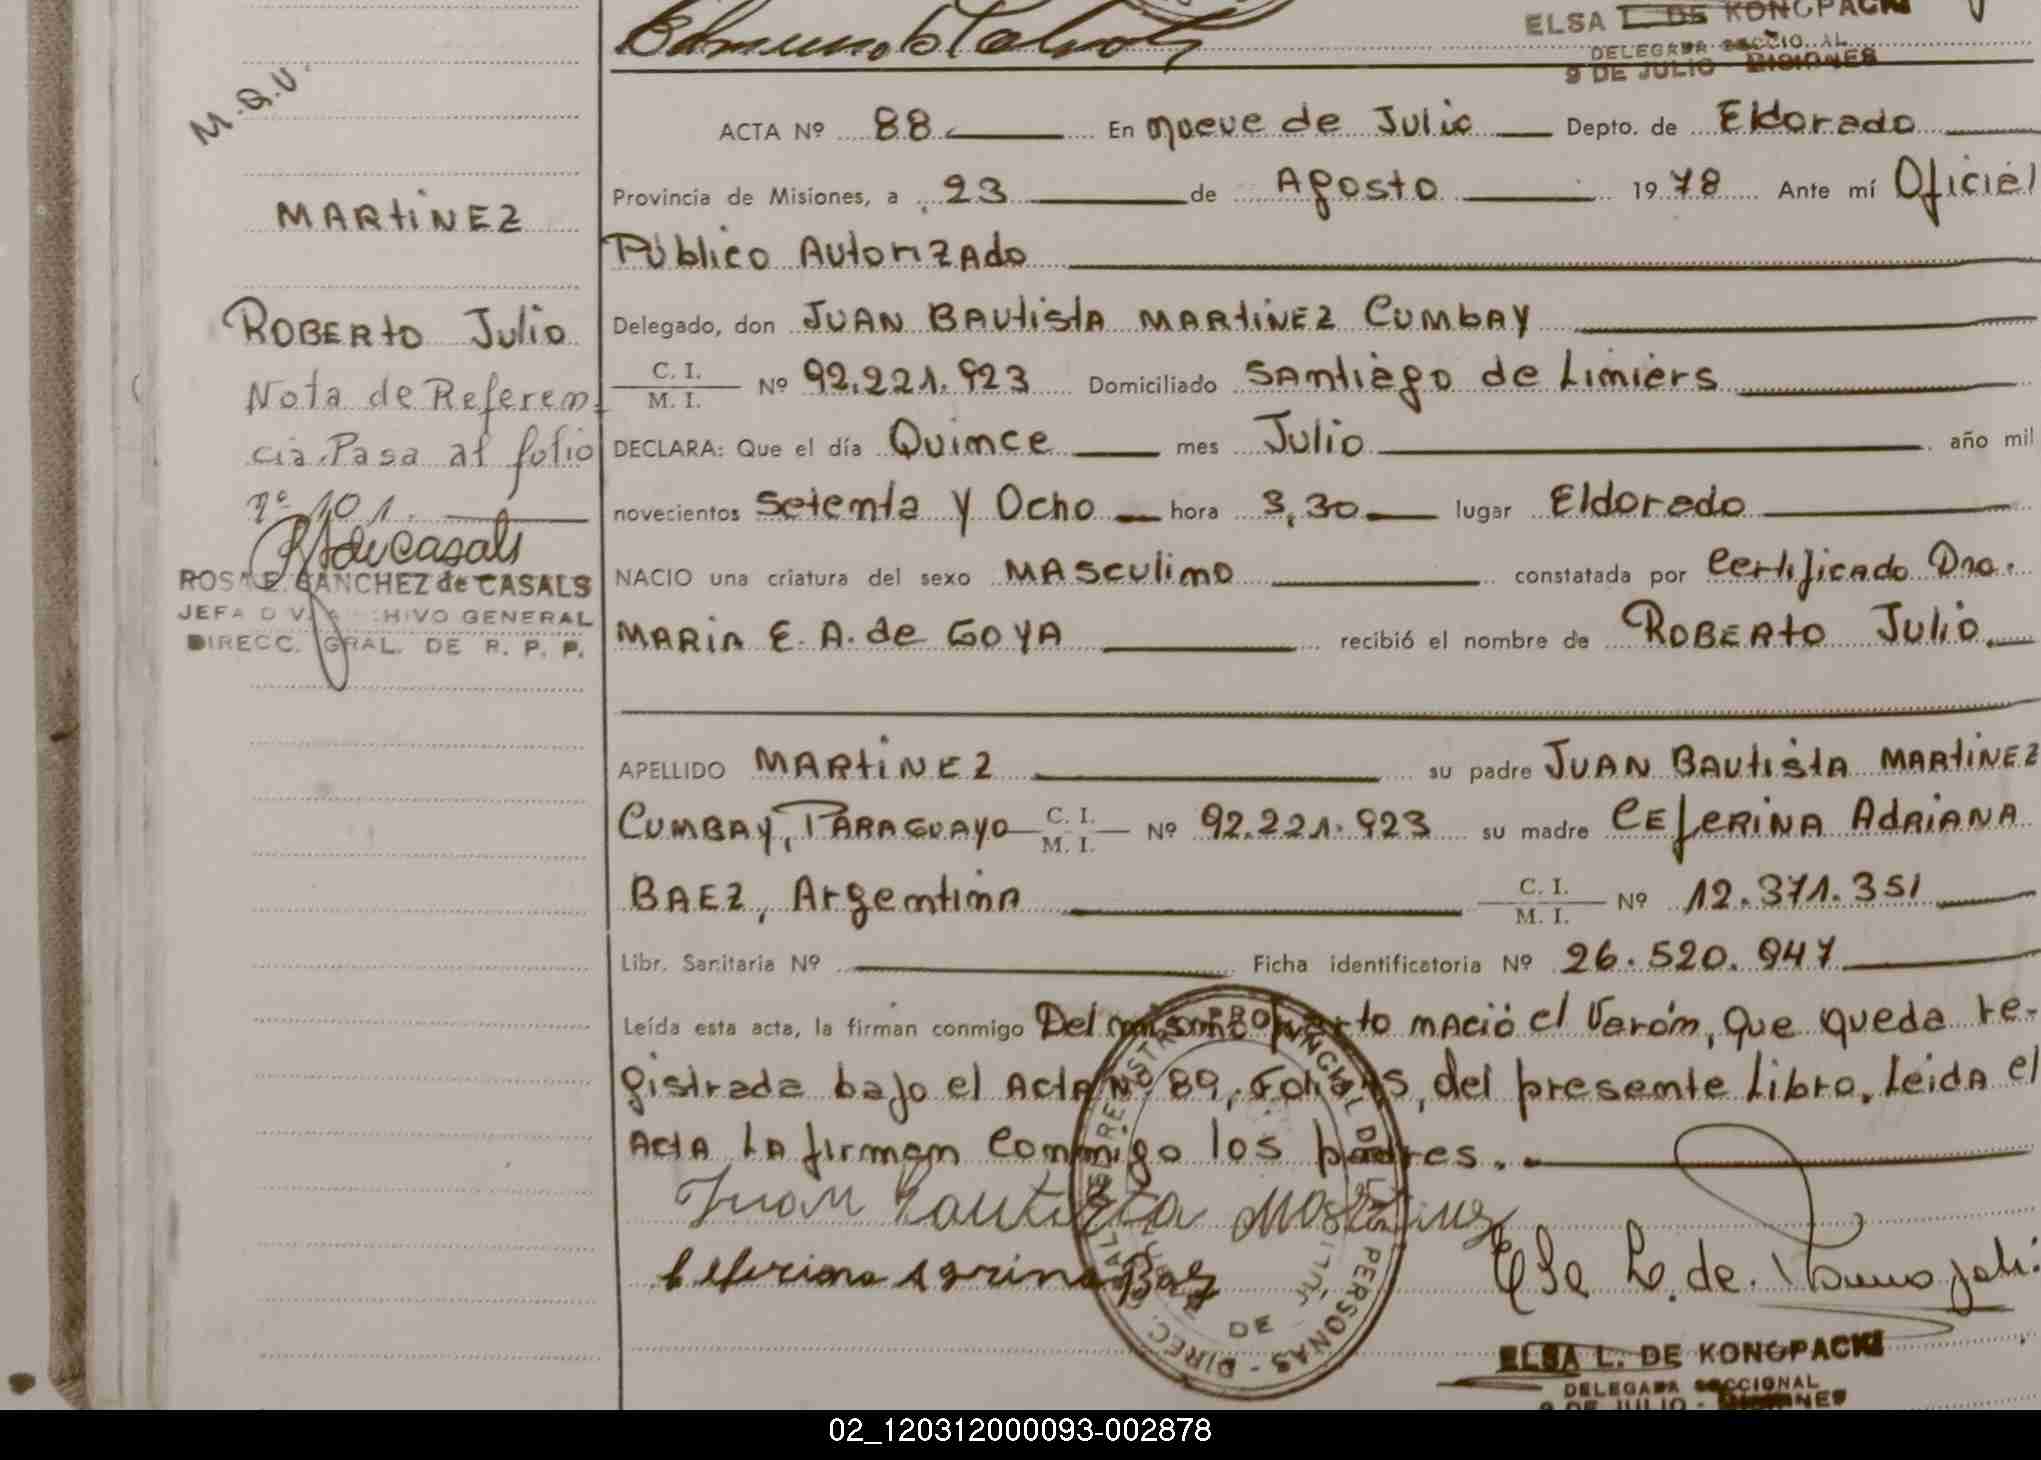 ELSA L. DE KONOPACKI
DELEGADA SECCIONAL
9 DE JULIO MISIONES
M.Q.U.
MARTINEZ
ROBERTO Julio
Nota de Referen-
cia. Pasa al folio
nº 101.
ROSA E. SANCHEZ de CASALS
JEFA DIV. ARCHIVO GENERAL
DIRECC. GRAL. DE R. P. P.
ACTA Nº 88 En nueve de Julio Depto. de Eldorado
Provincia de Misiones, a 23 de Agosto 1978 Ante mí Oficial
Público Autorizado
Delegado, don JUAN BAUtistA MARTINEZ CUMBAY
C. I.
M. I. Nº 92.221.923 Domiciliado Santiago de Limiers
DECLARA: Que el día Quince mes Julio año mil
novecientos setenta y Ocho hora 3,30 lugar Eldorado
NACIO una criatura del sexo MASculino constatada por Certificado Dra.
MARIA E. A. de GOYA recibió el nombre de ROBERTO Julio.
APELLIDO MARTINEZ su padre JUAN BAUtistA MARTINEZ
CUMBAY, PARAGUAYO C. I. M. I. Nº 92.221.923 su madre CEFERINA ADRIANA
BAEZ, Argentina C. I. M. I. Nº 12.371.351
Libr. Sanitaria Nº Ficha identificatoria Nº 26.520.947
Leída esta acta, la firman conmigo Del mismo parto nació el Varón, que queda re-
gistrada bajo el Acta Nº 89, Folio 45, del presente Libro. Leida el
Acta la firman conmigo los padres.
Juan Bautista Martinez
Ceferina Adriana Baez
Elsa L. de Konopacki
ELSA L. DE KONOPACKI
DELEGADA SECCIONAL
9 DE JULIO - MISIONES
02_120312000093-002878